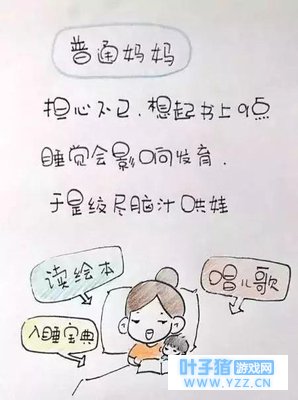 普通妈妈
担心不已,想起书上9点
睡觉会影响发育.
于是绞尽脑汁哄娃
读绘本
唱儿歌
入睡宝典
叶子猪游戏网
WWW.YZZ.CN